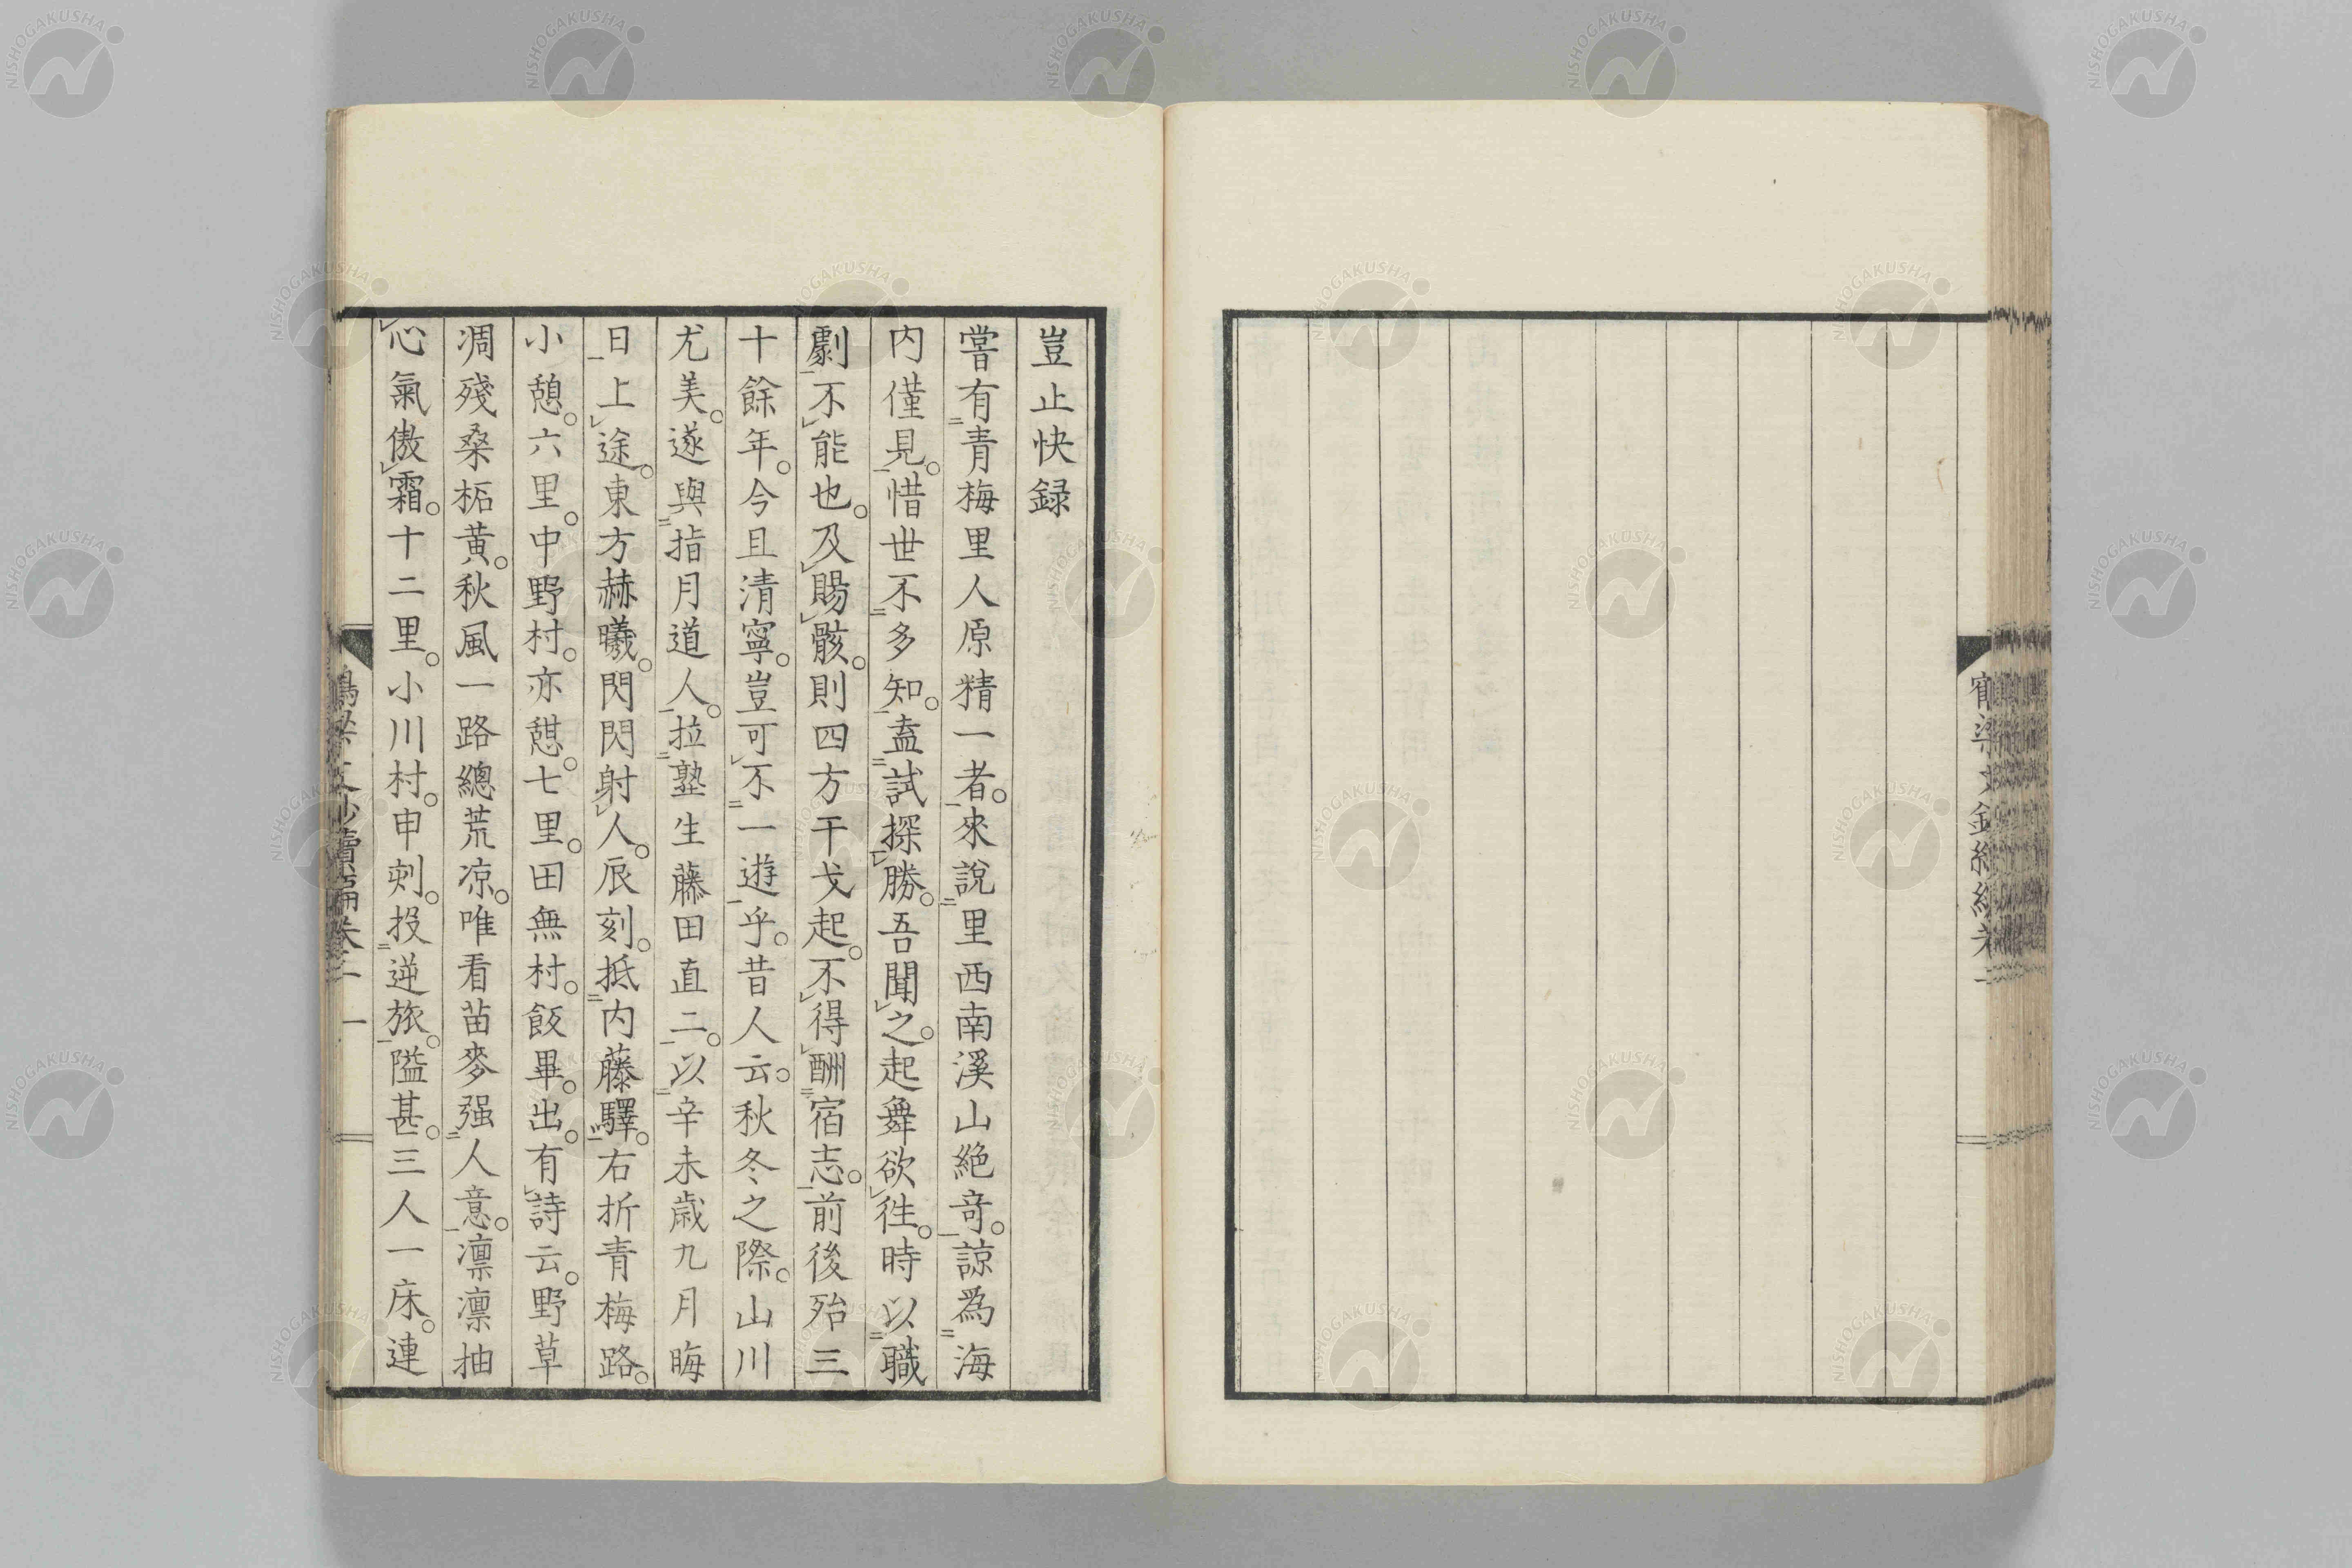 豈止快録
嘗有青梅里人原精一者。來説里西南溪山絶奇。諒爲海
内僅見。惜世不多知。盍試探勝。吾聞之。起舞欲徃。時以職
劇不能也。及賜骸。則四方干戈起。不得酬宿志。前後殆三
十餘年。今且清寧。豈可不一遊乎。昔人云。秋冬之際。山川
尤美。遂與指月道人。拉塾生藤田直二。以辛未歳九月晦
日上途。東方赫曦。閃閃射人。辰刻。抵内藤驛。右折青梅路。
小憩。六里。中野村。亦憩。七里。田無村。飯畢。出。有詩云。野草
凋殘桑柘黄。秋風一路總荒凉。唯看苗麥强人意。凛凛抽
心氣傲霜。十二里。小川村。申刺。投逆旅。隘甚。三人一床。連
NISHOGAKUSHA